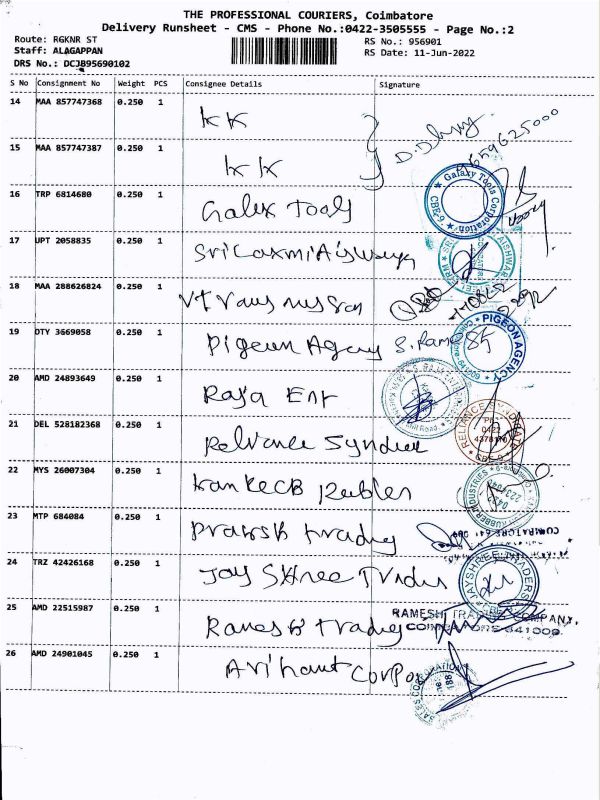 THE PROFESSIONAL COURIERS, Coimbatore
Delivery Runsheet - CMS - Phone No.:0422-3505555 - Page No.:2
Route: RGKNR ST
Staff: ALAGAPPAN
DRS No.: DCJB95690102
RS No.: 956901
RS Date: 11-Jun-2022
S No Consignment No Weight PCS Consignee Details Signature
14 MAA 857747368 0.250 1 KK
15 MAA 857747387 0.250 1 KK
16 TRP 6814680 0.250 1 Galex Tools
Galaxy Tools Corporation
CBE-9
17 UPT 2058835 0.250 1 Sri Laxmi
18 MAA 288626824 0.250 1
19 DTY 3669058 0.250 1 Pigeon Agency S. Ramesh
PIGEON AGENCY
20 AMD 24893649 0.250 1 Raja Ent
21 DEL 528182368 0.250 1 Relvance Syndicate
22 MYS 26007304 0.250 1
RUBBER INDUSTRIES
23 MTP 684084 0.250 1 Prakash trading
24 TRZ 42426168 0.250 1 Jay Shree Trader
JAYSHREE TRADERS
25 AMD 22515987 0.250 1 Ramesh trading
RAMESH TRADING COMPANY,
COIMBATORE 641009.
26 AMD 24901045 0.250 1 Arihant Corpo